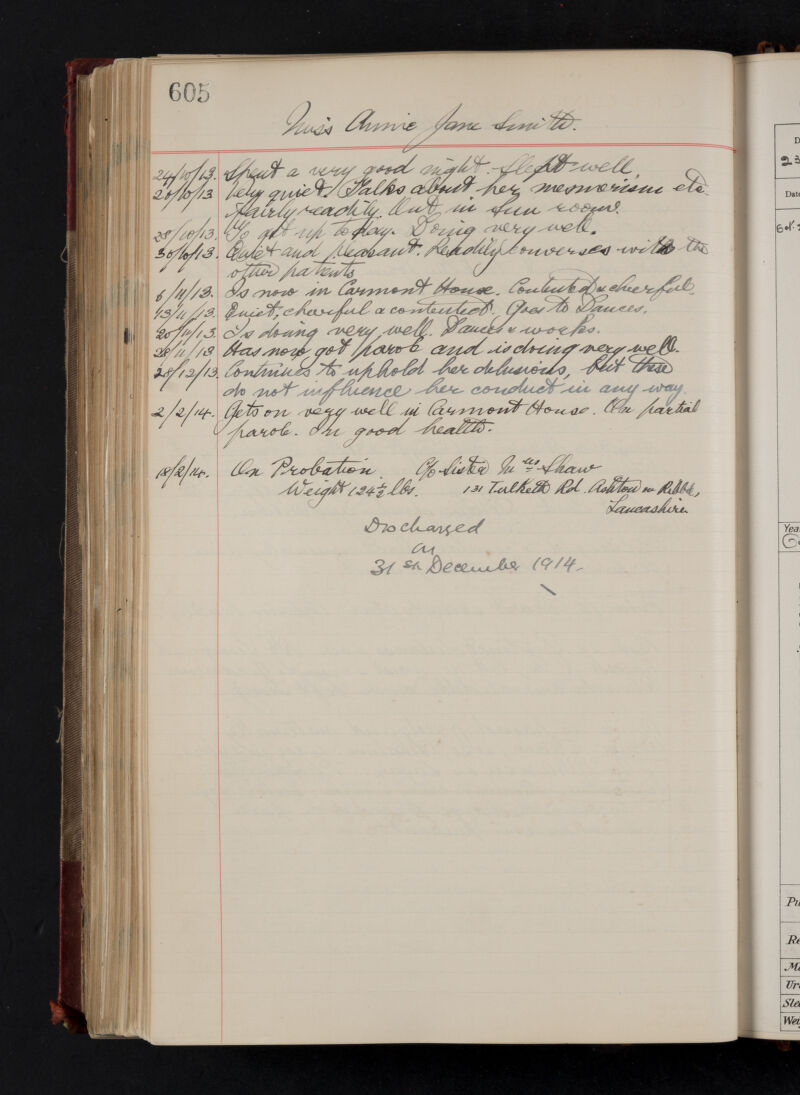 605
Miss Annie Jane Smith.
24/10/13. Spent a very good night. Slept well.
26/10/13 Very quiet. Talks about her mesmerism etc.
fairly readily. Out in sun room.
28/10/13. To get up today. Doing very well.
30/10/13. Quiet and pleasant. Readily converses with the
other patients
6/11/13. Is now in Carmont House. Contented & cheerful.
13/11/13. Quiet, cheerful & contented. Goes to Dances.
20/11/13. Is doing very well. Dances & works.
28/11/13 Has now got parole and is doing very well.
28/12/13. Continues to uphold her delusions, but these
do not influence her conduct in any way
2/2/14. Gets on very well in Carmont House. On partial
parole. In good health.
18/2/14. On Probation. C/o Sister Mrs Shaw
Weight 124½ lbs. 131 Tulketh Rd. Ashton on Ribble,
Lancashire
Discharged
on
31st December 1914.
D
23
Date
Yea
Pu
Re
Ma
Uri
Slee
Wei